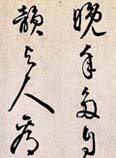 晚年多自
韻与人為